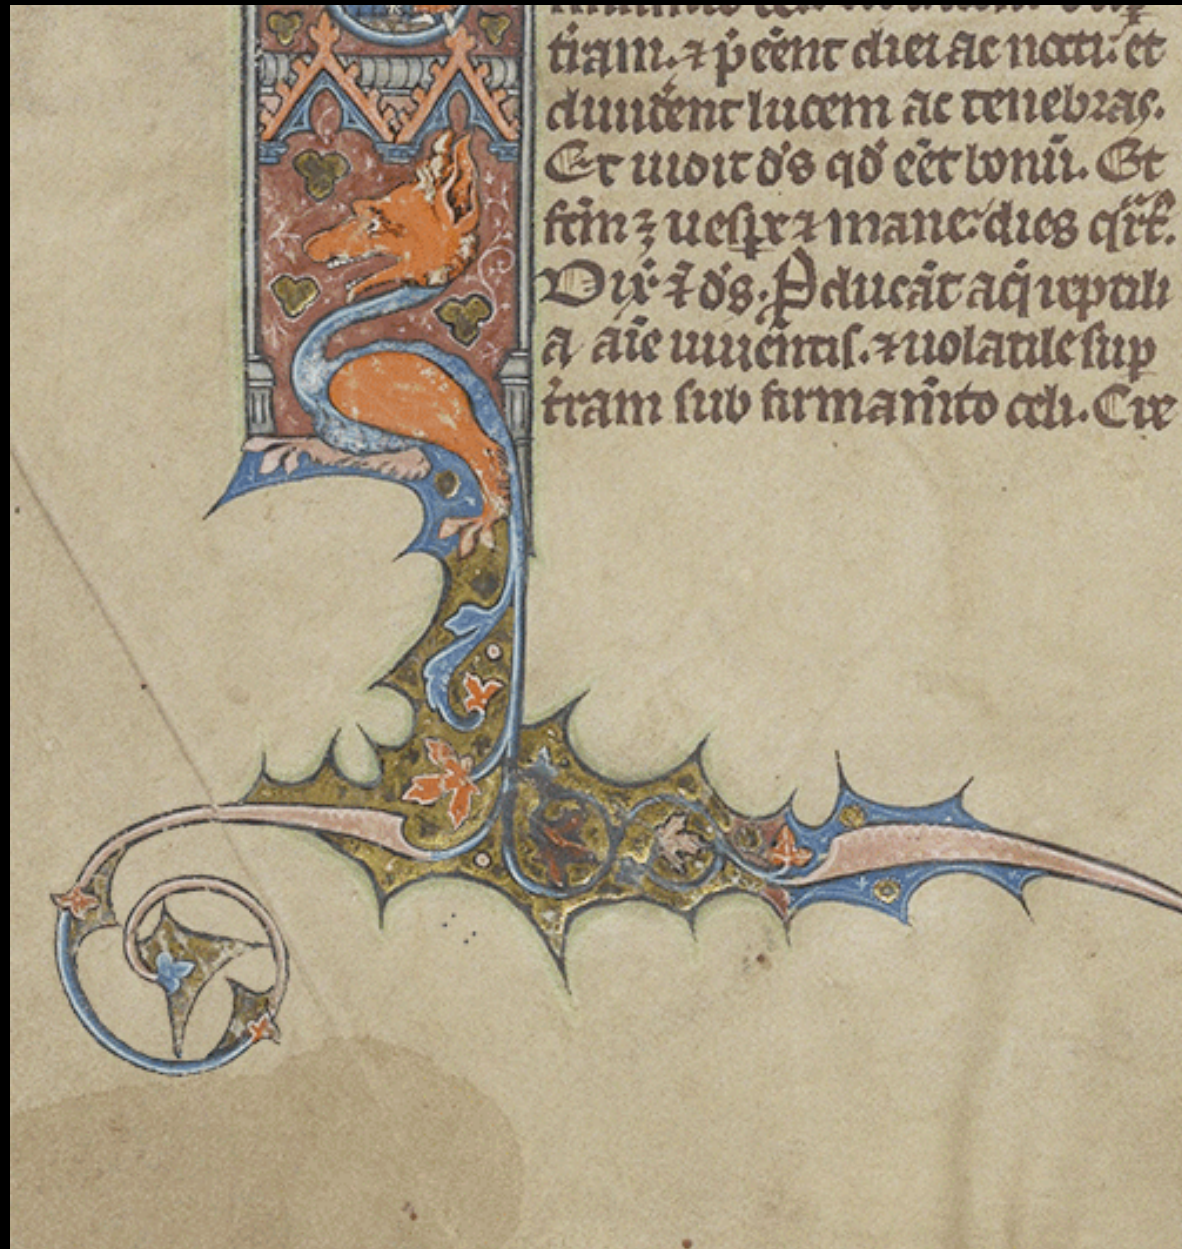 tiam. ⁊ p̄cēnt diei ac nocti. et
diuidēnt lucem ac tenebras.
Et uidit d̄s qd̄ eēt bonū. Et
fc̄m ꝫ uesp̄e ⁊ mane: dies qr̄t̄.
Dix̄ ⁊̄ d̄s. P̄ducāt aq̄ reptili
a aīe uiuentis. ⁊ uolatile sup
t̄ram sub firmam̄to celi. Cre